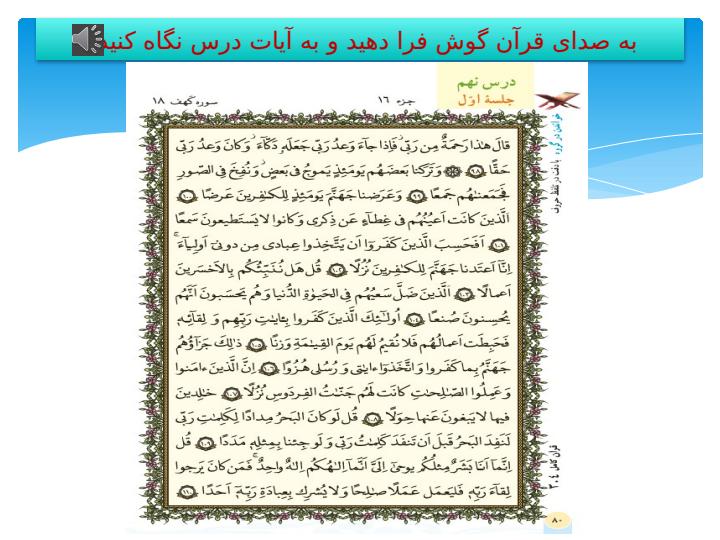 به صدای قرآن گوش فرا دهید و به آیات درس نگاه کنید
درس نهم
جلسهٔ اوّل
جزء ۱۶
سوره کهف ۱۸
قالَ هٰذا رَحمَةٌ مِن رَبّی فَاِذا جاءَ وَعدُ رَبّی جَعَلَهٗ دَکّاءَ وَ کانَ وَعدُ رَبّی
حَقًّا ۹۸ وَ تَرَکنا بَعضَهُم یَومَئِذٍ یَموجُ فی بَعضٍ وَ نُفِخَ فِی الصّورِ
فَجَمَعناهُم جَمعًا ۹۹ وَ عَرَضنا جَهَنَّمَ یَومَئِذٍ لِلکافِرینَ عَرضًا ۱۰۰
اَلَّذینَ کانَت اَعیُنُهُم فی غِطاءٍ عَن ذِکری وَ کانوا لا یَستَطیعونَ سَمعًا
۱۰۱ اَفَحَسِبَ الَّذینَ کَفَروا اَن یَتَّخِذوا عِبادی مِن دونی اَولِیاءَ
اِنّا اَعتَدنا جَهَنَّمَ لِلکافِرینَ نُزُلًا ۱۰۲ قُل هَل نُنَبِّئُکُم بِالاَخسَرینَ
اَعمالًا ۱۰۳ اَلَّذینَ ضَلَّ سَعیُهُم فِی الحَیوٰةِ الدُّنیا وَ هُم یَحسَبونَ اَنَّهُم
یُحسِنونَ صُنعًا ۱۰۴ اُولٰئِکَ الَّذینَ کَفَروا بِئایاتِ رَبِّهِم وَ لِقائِهٖ
فَحَبِطَت اَعمالُهُم فَلا نُقیمُ لَهُم یَومَ القِیامَةِ وَزنًا ۱۰۵ ذٰلِکَ جَزاؤُهُم
جَهَنَّمُ بِما کَفَروا وَ اتَّخَذوا ءایاتی وَ رُسُلی هُزُوًا ۱۰۶ اِنَّ الَّذینَ ءامَنوا
وَ عَمِلُوا الصّالِحاتِ کانَت لَهُم جَنّاتُ الفِردَوسِ نُزُلًا ۱۰۷ خالِدینَ
فیها لا یَبغونَ عَنها حِوَلًا ۱۰۸ قُل لَو کانَ البَحرُ مِدادًا لِکَلِماتِ رَبّی
لَنَفِدَ البَحرُ قَبلَ اَن تَنفَدَ کَلِماتُ رَبّی وَ لَو جِئنا بِمِثلِهٖ مَدَدًا ۱۰۹ قُل
اِنَّما اَنَا بَشَرٌ مِثلُکُم یوحیٰ اِلَیَّ اَنَّما اِلٰهُکُم اِلٰهٌ واحِدٌ فَمَن کانَ یَرجوا
لِقاءَ رَبِّهٖ فَلیَعمَل عَمَلًا صالِحًا وَ لا یُشرِک بِعِبادَةِ رَبِّهٖ اَحَدًا ۱۱۰
۸۰